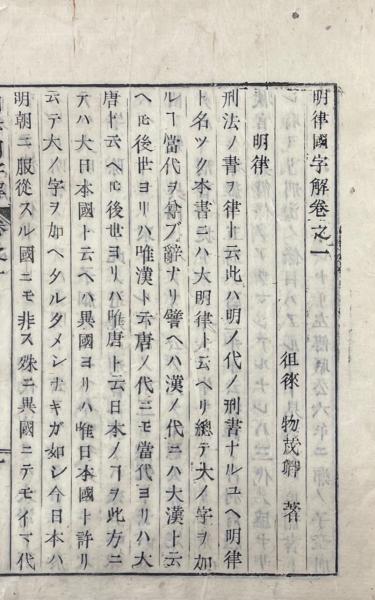 明律國字解卷之一
徂徠 物茂卿 著
明律
刑法ノ書ヲ律ト云此ハ明ノ代ノ刑書ナルユヘ明律
ト名ツク本書ニハ大明律ト云ヘリ總テ大ノ字ヲ加
ルヿ當代ヲ尊ブ辭ナリ譬ヘハ漢ノ代ニハ大漢ト云
ヘ𪜈後世ヨリハ唯漢ト云唐ノ代ニモ當代ヨリハ大
唐ト云ヘ𪜈後世ヨリハ唯唐ト云日本ノヿヲ此方ニ
テハ大日本國ト云ヘハ異國ヨリハ唯日本國ト許リ
云テ大ノ字ヲ加ヘタルタメシナキガ如シ今日本ハ
明朝ニ服從スル國ニモ非ス殊ニ異國ニテモイマ代